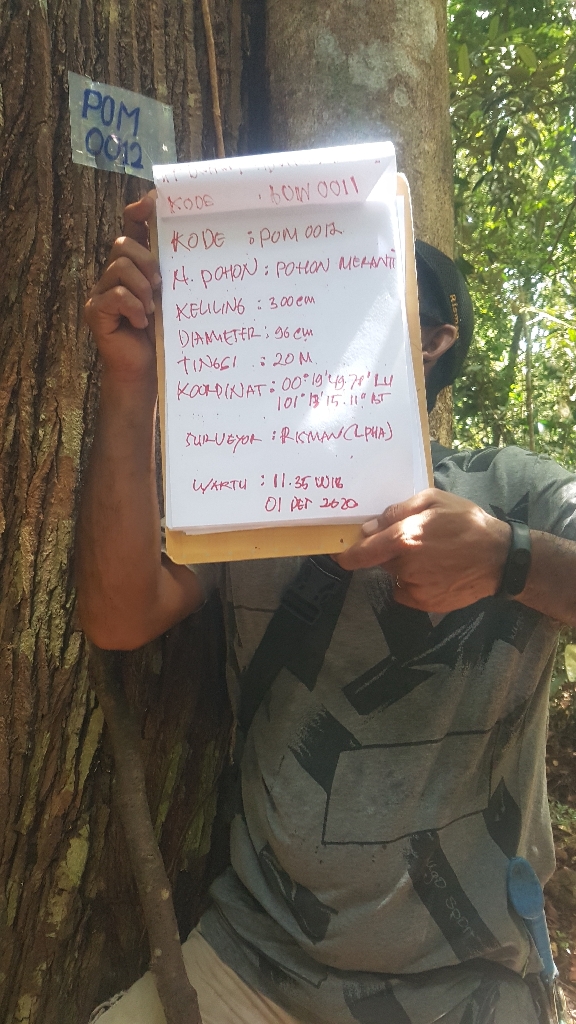 POM
0012
KODE : POM 0011
KODE : POM 0012
N. POHON : POHON MERANTI
KELILING : 300 cm
DIAMETER : 96 cm
TINGGI : 20 M
KOORDINAT : 00° 19' 49.78" LU
101° 13' 15.11" BT
SURVEYOR : RKMAN (LPHA)
WAKTU : 11.35 WIB
01 DET 2020